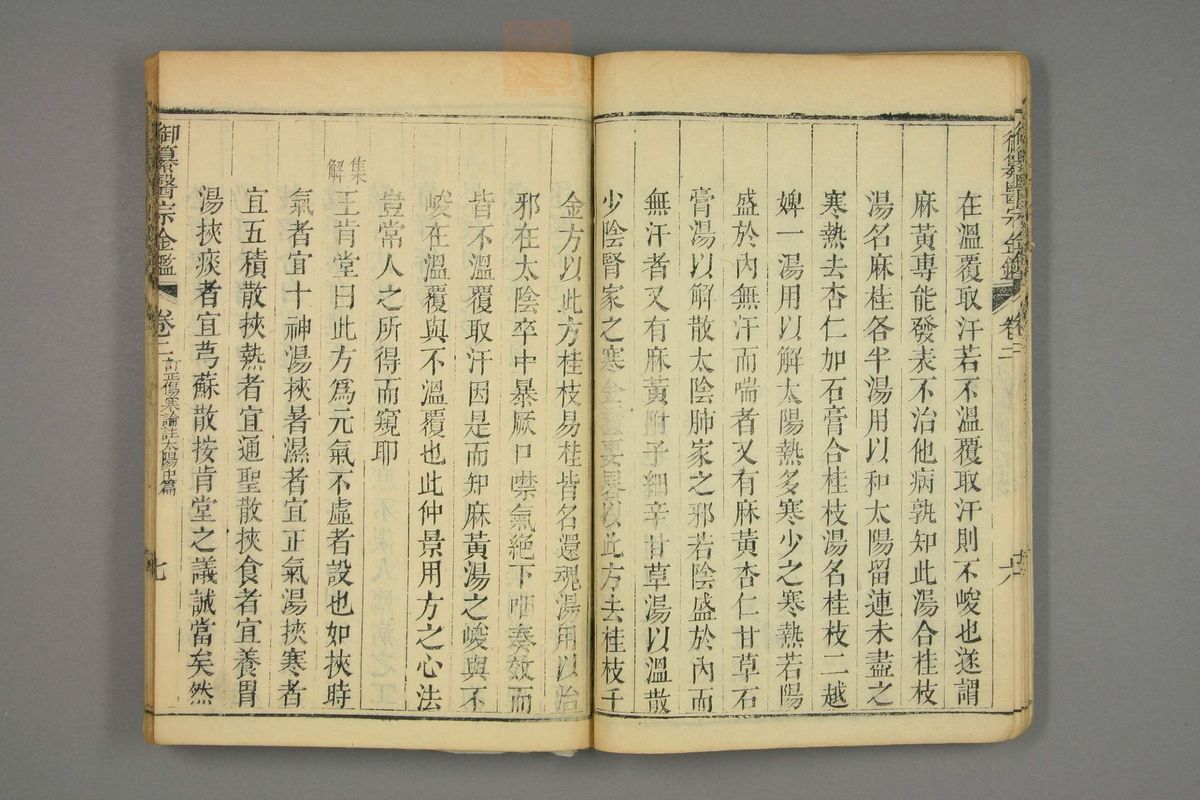 在溫覆取汗若不溫覆取汗則不峻也遂謂
麻黃專能發表不治他病孰知此湯合桂枝
湯名麻桂各半湯用以和太陽留連未盡之
寒熱去杏仁加石膏合桂枝湯名桂枝二越
婢一湯用以解太陽熱多寒少之寒熱若陽
盛於內無汗而喘者又有麻黃杏仁甘草石
膏湯以解散太陰肺家之邪若陰盛於內而
無汗者又有麻黃附子細辛甘草湯以溫散
少陰腎家之寒金匱要畧以此方去桂枝千
金方以此方桂枝易桂皆名還魂湯用以治
邪在太陰卒中暴厥口噤氣絕下咽奏效而
皆不溫覆取汗因是而知麻黃湯之峻與不
峻在溫覆與不溫覆也此仲景用方之心法
豈常人之所得而窺耶
集解
王肯堂曰此方爲元氣不虛者設也如挾時
氣者宜十神湯挾暑濕者宜正氣湯挾寒者
宜五積散挾熱者宜通聖散挾食者宜養胃
湯挾痰者宜芎蘇散按肯堂之議誠當矣然
御纂醫宗金鑑
卷二
訂正傷寒論註太陽中篇
七